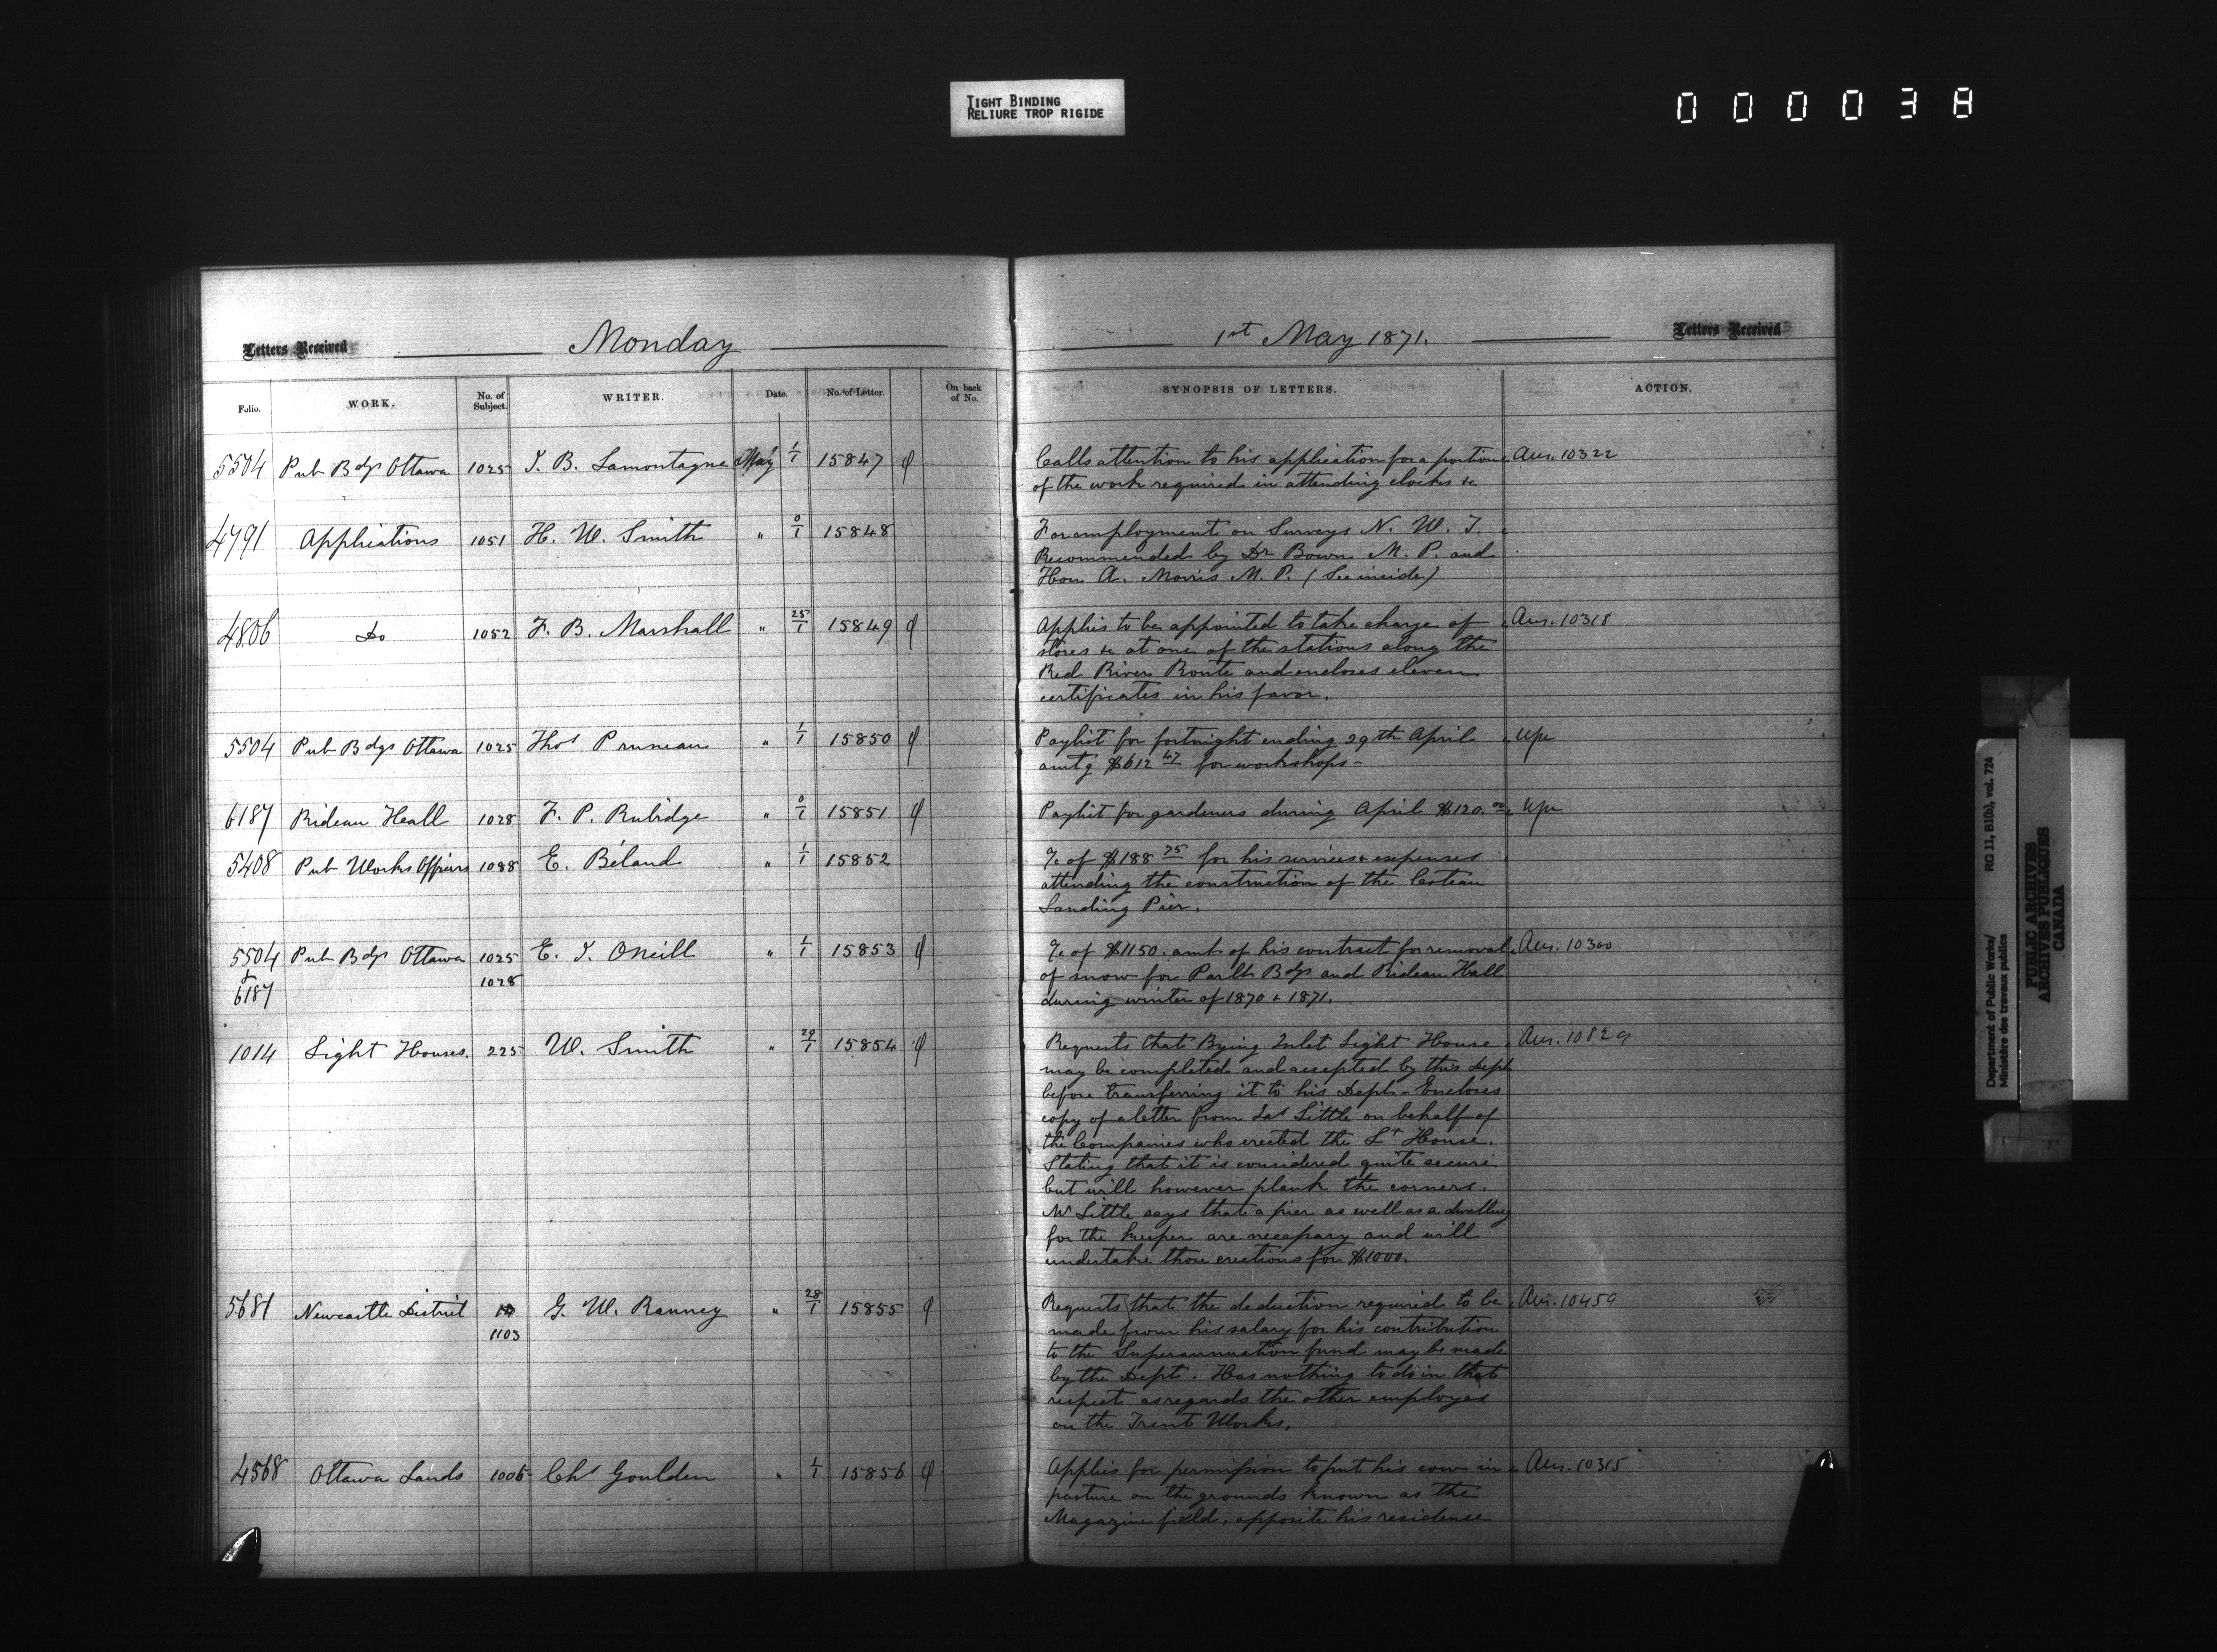 TIGHT BINDING
RELIURE TROP RIGIDE
000038
Letters Received Monday 1st May 1871. Letters Received
Folio. WORK. No. of Subject. WRITER. Date. No. of Letter. On back of No. SYNOPSIS OF LETTERS. ACTION.
5504 Pub Bdgs Ottawa 1025 J. B. Lamontagne May 1/1 15847 φ Calls attention to his application for a portion Ans. 10322
of the work required in attending clocks &c
4791 Applications 1051 H. W. Smith " 0/1 15848 For employment on Surveys N. W. T.
Recommended by Dr Bown M. P. and
Hon A. Morris M. P. (See inside)
4806 Do 1052 F. B. Marshall " 25/1 15849 φ Applies to be appointed to take charge of Ans. 10318
stores &c at one of the stations along the
Red River Route and encloses eleven
certificates in his favor.
5504 Pub Bdgs Ottawa 1025 Thos Pruneau " 1/1 15850 φ Paylist for fortnight ending 29th April
amtg $612 47 for workshops -
6187 Rideau Hall 1028 F. P. Rubidge " 0/1 15851 φ Paylist for gardeners during April $120.00
5408 Pub Works Officers 1088 E. Béland " 1/1 15852 %c of $188 75 for his services & expenses
attending the construction of the Coteau
Landing Pier.
5504 Pub Bdgs Ottawa 1025 E. J. ONeill " 1/1 15853 φ %c of $1150. amt of his contract for removal Ans. 10300
& 6187 1028 of snow for Parlt Bdgs and Rideau Hall
during winter of 1870 & 1871.
1014 Light Houses. 225 W. Smith " 29/1 15854 φ Requests that Bying Inlet Light House Ans. 10829
may be completed and accepted by this Dept
before transferring it to his Dept - Encloses
copy of a letter from Jas Little on behalf of
the Companies who erected the Lt House.
Stating that it is considered quite secure
but will however plank the corners.
Mr Little says that a pier as well as a dwelling
for the keeper are necessary and will
undertake those erections for $1000.
5681 Newcastle District 1103 G. W. Ranney " 28/1 15855 φ Requests that the deduction required to be Ans. 10459
made from his salary for his contribution
to the Superannuation fund may be made
by the Dept. Has nothing to do in that
respect as regards the other employés
on the Trent Works.
4568 Ottawa Lands 1006 Chs Goulden " 1/1 15856 φ Applies for permission to put his cow in Ans. 10315
pasture on the grounds known as the
Magazine field, opposite his residence
Department of Public Works/ RG 11, B1(b), vol. 724
Ministère des travaux publics
PUBLIC ARCHIVES
ARCHIVES PUBLIQUES
CANADA